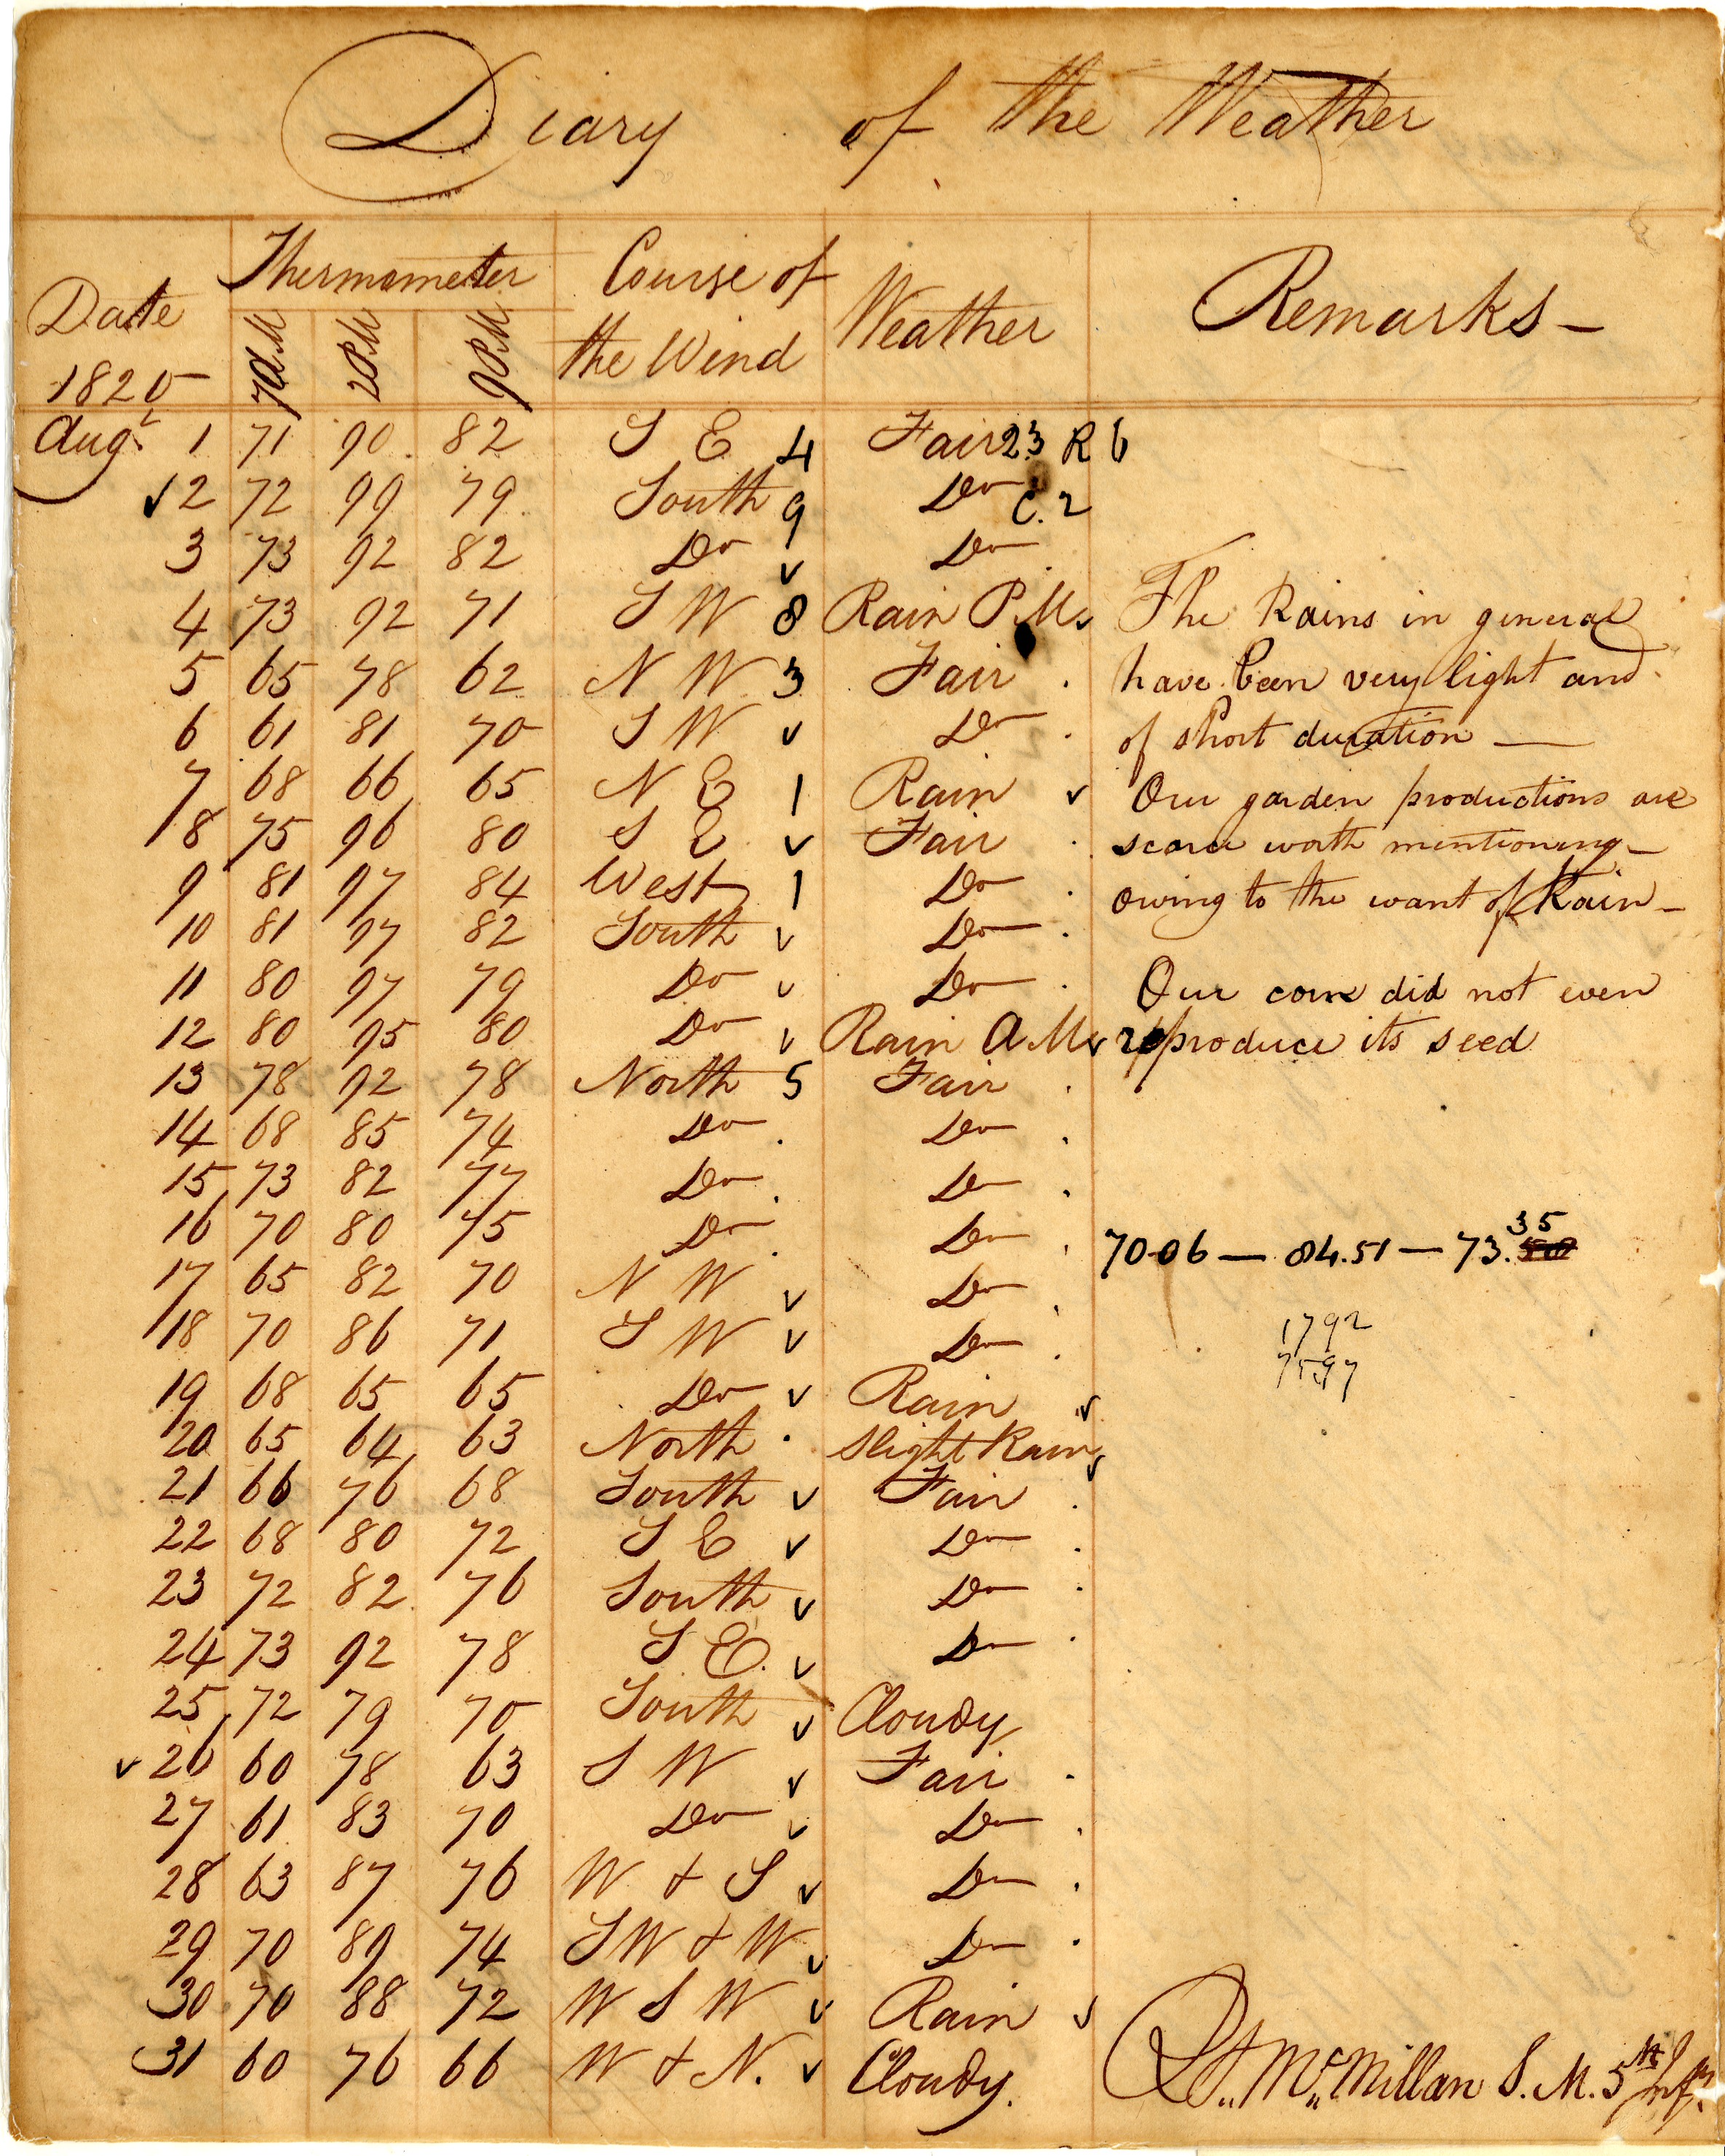 Diary of the Weather
Date 1820 Thermometer 7 A.M 2 P.M 9 P.M Course of the Wind Weather Remarks —
Augt 1 71 90 82 S E 4 Fair 23 R 6
✓ 2 72 99 79 South 9 Do C. 2
3 73 92 82 Do ✓ Do
4 73 92 71 S W 8 Rain P.M. The Rains in general
5 65 78 62 N W. 3 Fair have been very light and
6 61 81 70 S W ✓ Do of short duration —
7 68 66 65 N E 1 Rain ✓ Our garden productions are
8 75 96 80 S E ✓ Fair scarce worth mentioning —
9 81 97 84 West 1 Do owing to the want of Rain —
10 81 97 82 South ✓ Do
11 80 97 79 Do ✓ Do Our corn did not even
12 80 95 80 Do ✓ Rain A.M. ✓ reproduce its seed
13 78 92 78 North 5 Fair
14 68 85 74 Do Do
15 73 82 77 Do Do
16 70 80 75 Do Do 70.06 — 84.51 — 73.35
17 65 82 70 N W ✓ Do
18 70 86 71 S W ✓ Do 1792
7597
19 68 65 65 Do ✓ Rain ✓
20 65 64 63 North Slight Rain ✓
21 66 76 68 South ✓ Fair
22 68 80 72 S E ✓ Do
23 72 82 76 South ✓ Do
24 73 92 78 S E. ✓ Do
25 72 79 70 South ✓ Cloudy
✓ 26 60 78 63 S W ✓ Fair
27 61 83 70 Do ✓ Do
28 63 87 76 W & S ✓ Do
29 70 89 74 S W & W ✓ Do
30 70 88 72 W S W ✓ Rain ✓
31 60 76 66 W & N. ✓ Cloudy. McMillan S. M. 5th Infy.